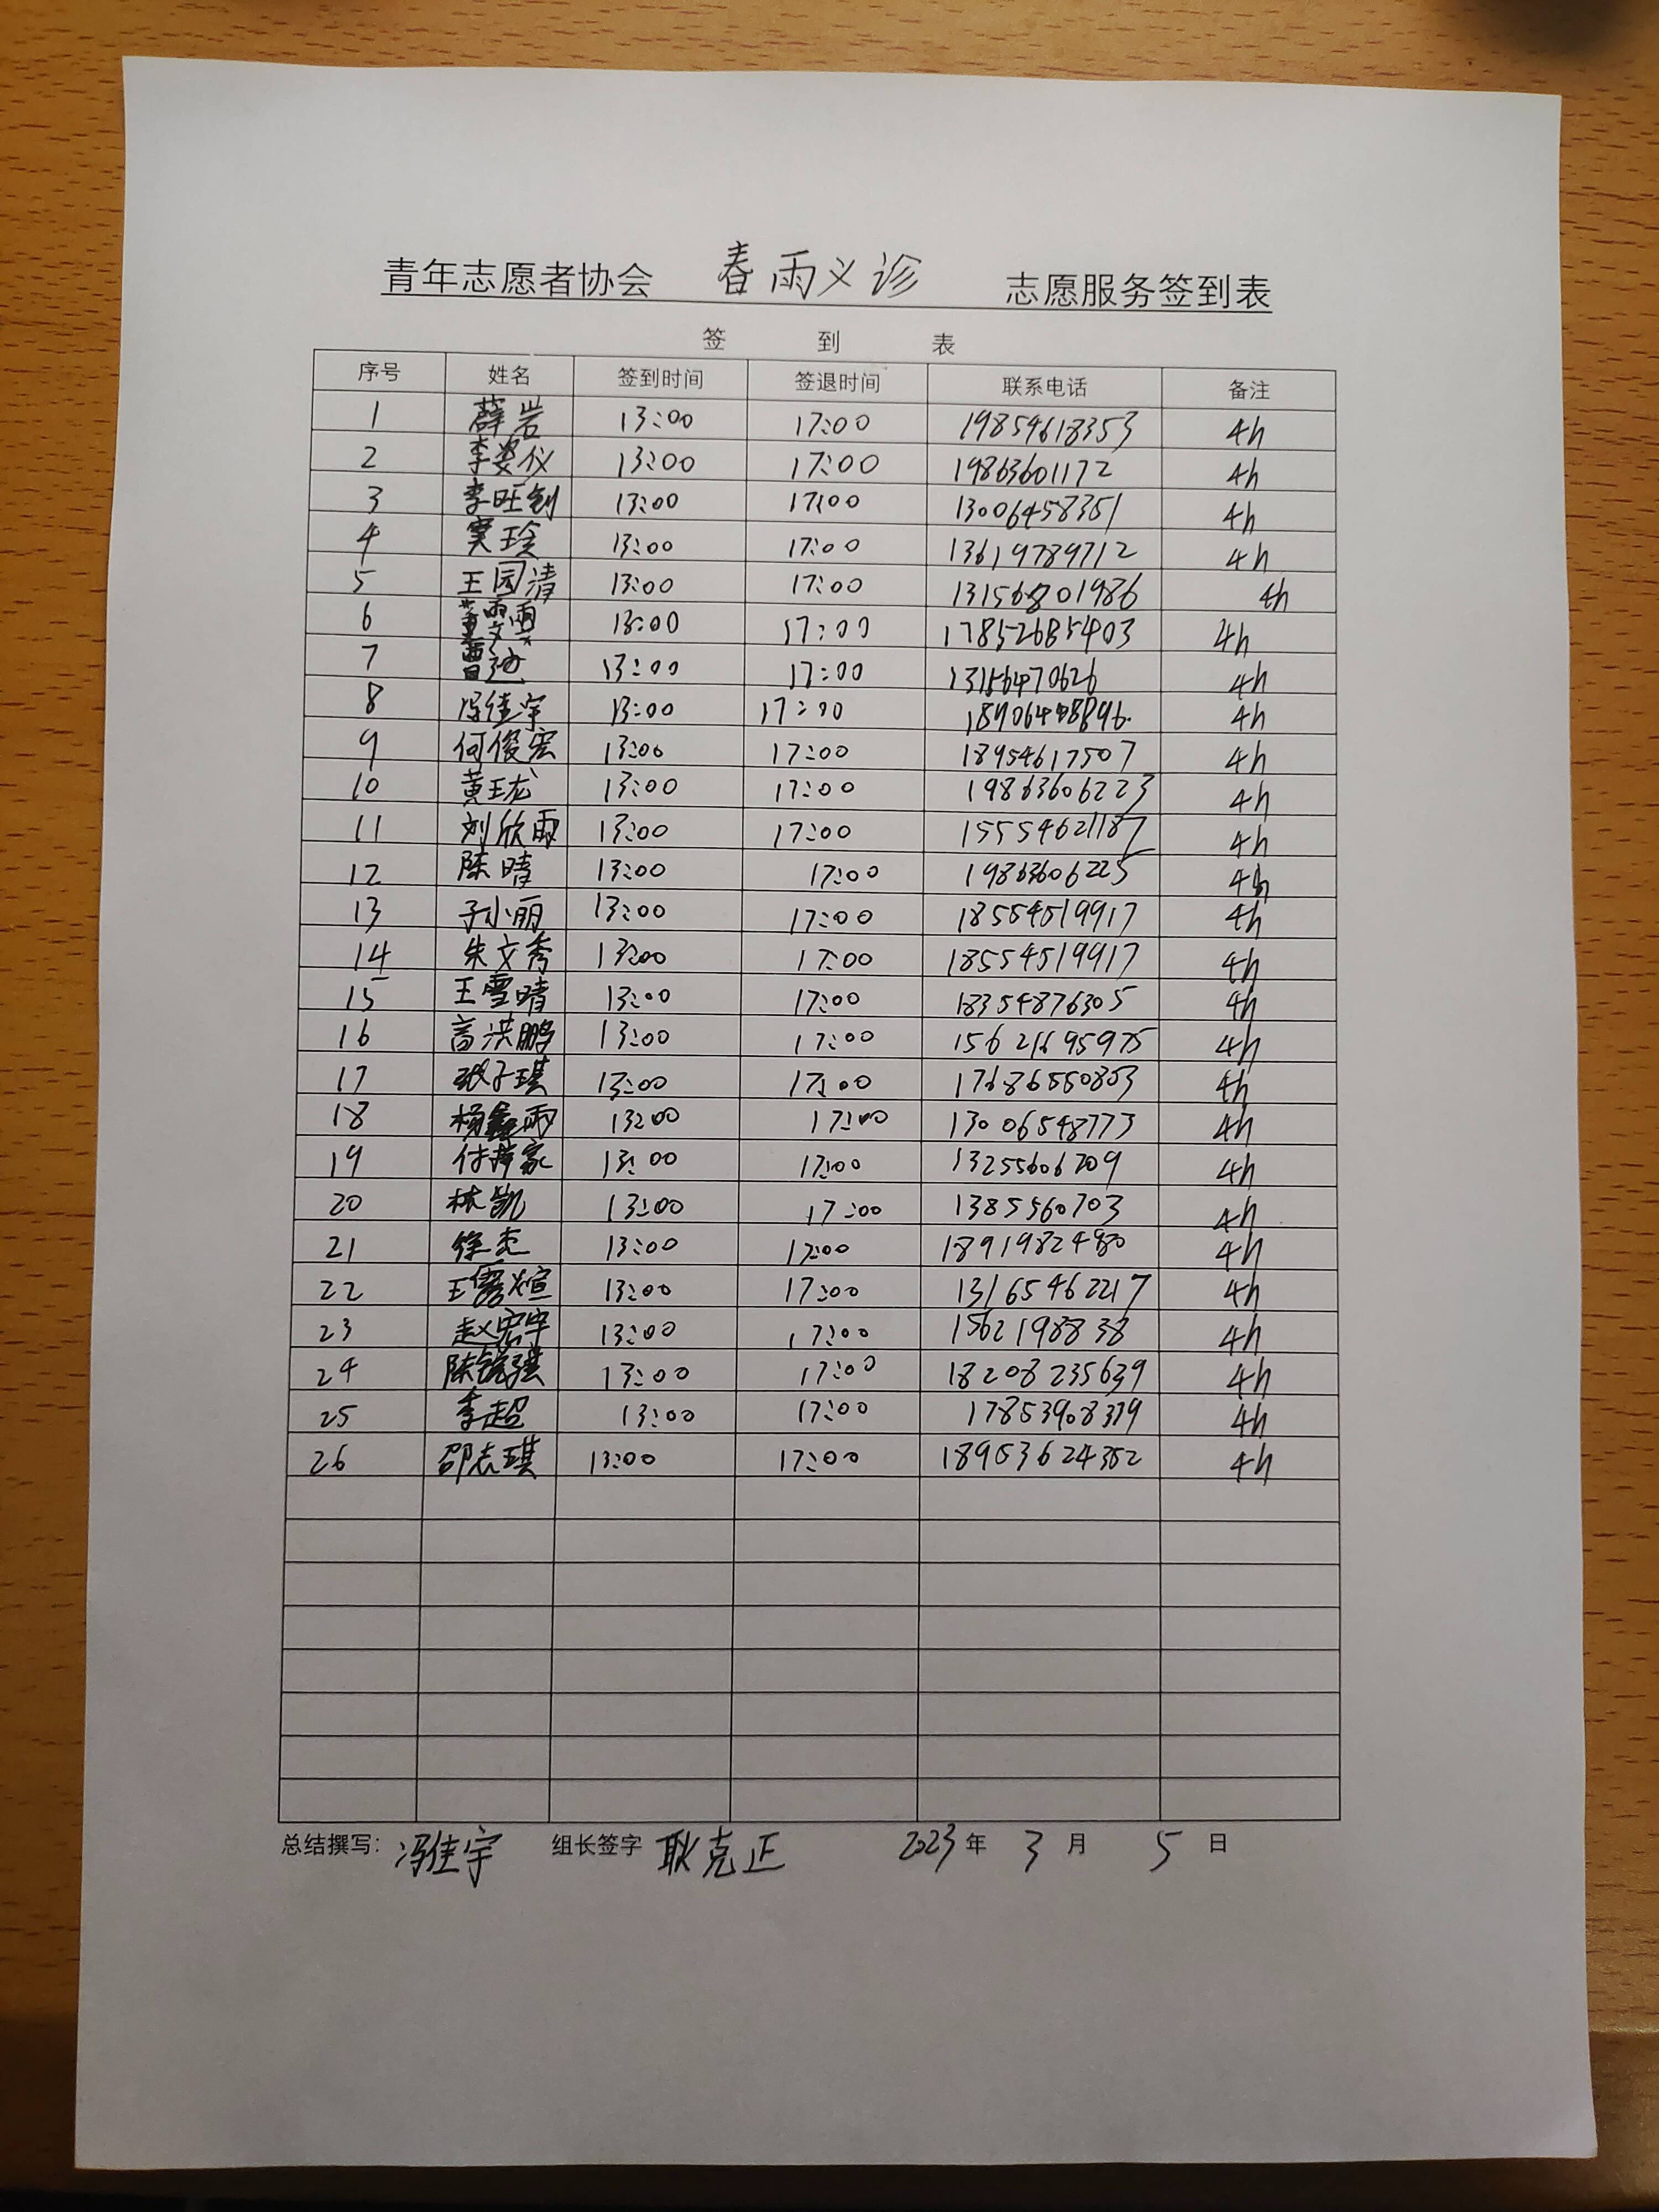 青年志愿者协会 春雨义诊 志愿服务签到表
签 到 表
序号 姓名 签到时间 签退时间 联系电话 备注
1 薛岩 13:00 17:00 19854618353 4h
2 李姿仪 13:00 17:00 19863601172 4h
3 李旺钊 13:00 17:00 13006458351 4h
4 13:00 17:00 13619789712 4h
5 王园清 13:00 17:00 4h
6 13:00 17:00 17852685403 4h
7 曹迪 13:00 17:00 13156470626 4h
8 冯佳宇 13:00 17:00 4h
9 何俊宏 13:00 17:00 18954617507 4h
10 黄珑 13:00 17:00 19863606223 4h
11 刘欣雨 13:00 17:00 15554621187 4h
12 陈晴 13:00 17:00 19863606225 4h
13 子小丽 13:00 17:00 18554519917 4h
14 朱文秀 13:00 17:00 18554519917 4h
15 王雪晴 13:00 17:00 18354876305 4h
16 高洪鹏 13:00 17:00 4h
17 张子琪 13:00 17:00 17686550803 4h
18 13:00 17:00 13006548773 4h
19 13:00 17:00 13255606209 4h
20 林凯 13:00 17:00 1385560703 4h
21 徐杰 13:00 17:00 4h
22 13:00 17:00 13165462217 4h
23 赵宏宇 13:00 17:00 1562198838 4h
24 13:00 17:00 18208235639 4h
25 李超 13:00 17:00 17853908379 4h
26 邵志琪 13:00 17:00 18953624352 4h
总结撰写: 冯佳宇 组长签字 耿克正 2023 年 3 月 5 日